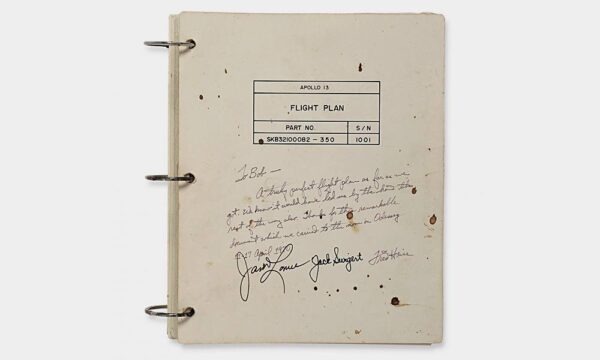 APOLLO 13
FLIGHT PLAN
PART NO. S/N
SKB32100082-350 1001
To Bob —
A truly perfect flight plan as far as we
got. We know it would have led us by the hand the
rest of the way also. Thanks for this remarkable
document which we carried to the moon on Odyssey
17 April 1970
Jack Swigert
Fred Haise